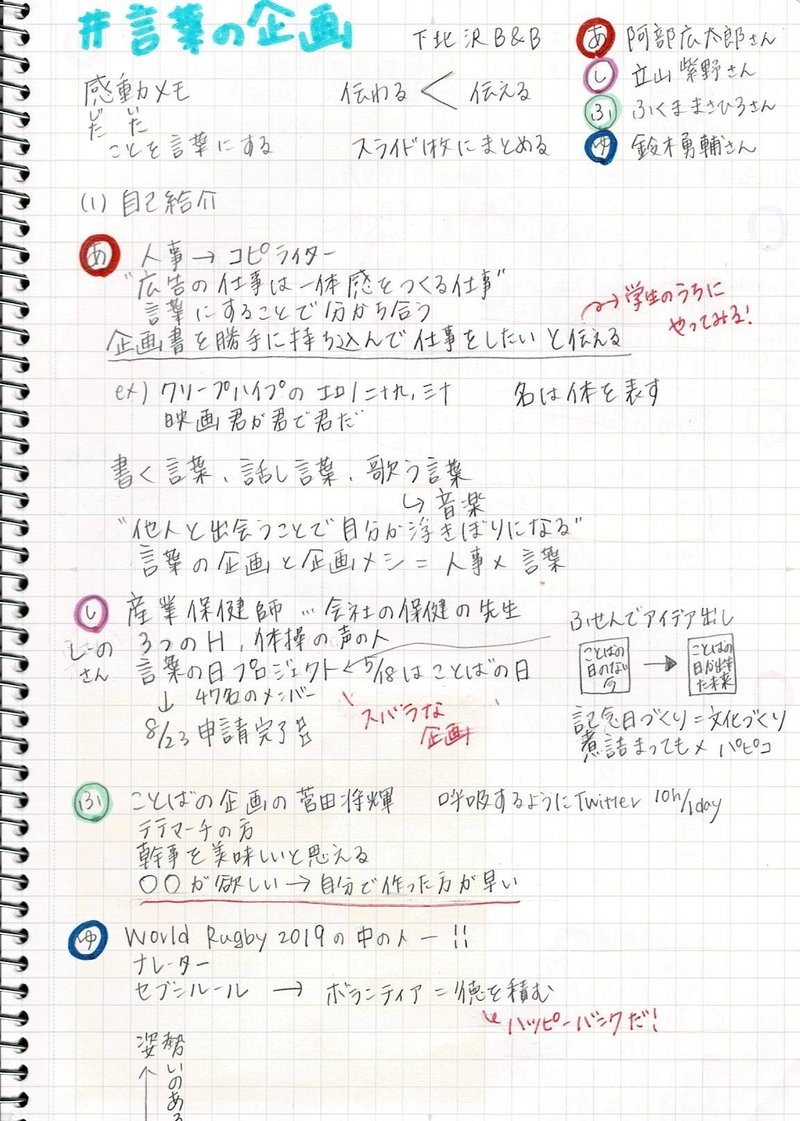 #言葉の企画
下北沢B&B
あ 阿部広太郎さん
し 立山紫野さん
ふ ふくままさひろさん
ゆ 鈴木勇輔さん
感動メモ
じた いた
ことを言葉にする
伝わる < 伝える
スライド1枚にまとめる
(1) 自己紹介
あ 人事→コピライター
"広告の仕事は一体感をつくる仕事"
言葉にすることで分かち合う
企画書を勝手に持ち込んで仕事をしたいと伝える
→学生のうちに
やってみる!
ex) クリープハイプのエロ/二十九、三十
名は体を表す
映画君が君で君だ
書く言葉、話し言葉、歌う言葉
↳音楽
"他人と出会うことで自分が浮きぼりになる"
言葉の企画と企画メシ=人事×言葉
し 産業保健師…会社の保健の先生
しーの
さん
3つのH、体操の声の人
言葉の日プロジェクト←5/18はことばの日
↓ 47名のメンバー
8/23 申請完了
スバラな
企画
ふせんでアイデア出し
ことばの
日のない
今
→
ことばの
日が出来
た未来
記念日づくり=文化づくり
煮詰まっても× パピコ
ふ ことばの企画の菅田将輝
呼吸するようにTwitter 10h/1day
テテマーチの方
幹事を美味しいと思える
〇〇が欲しい→自分で作った方が早い
ゆ World Rugby 2019の中の人ー!!
ナレーター
セブンルール → ボランティア=徳を積む
ハッピーバンクだ!
姿勢
↑
いのある